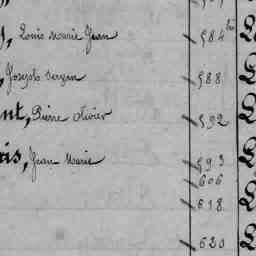 Louis Marie Jean 584 bis
Joseph 588
nt, Pierre Olivier 592
ris, Jean Marie 593
606
618
620